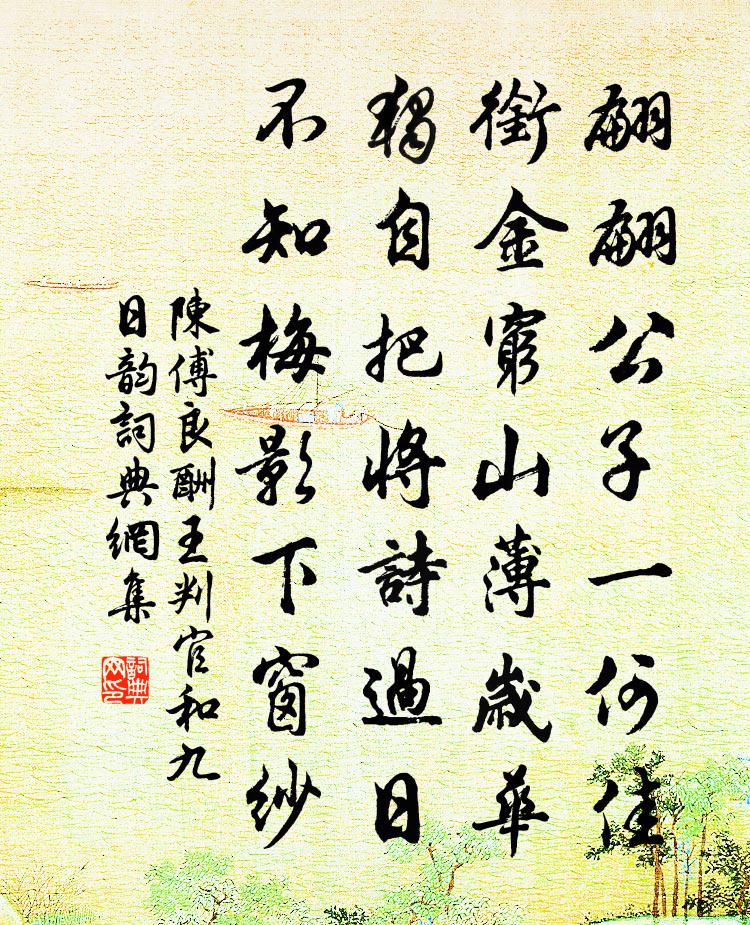 翩翩公子一何佳
衔金窮山薄歲華
獨自把將詩過日
不知梅影下窗紗
陳傅良酬王判官和九
日韵詞典網集
詞典
网印